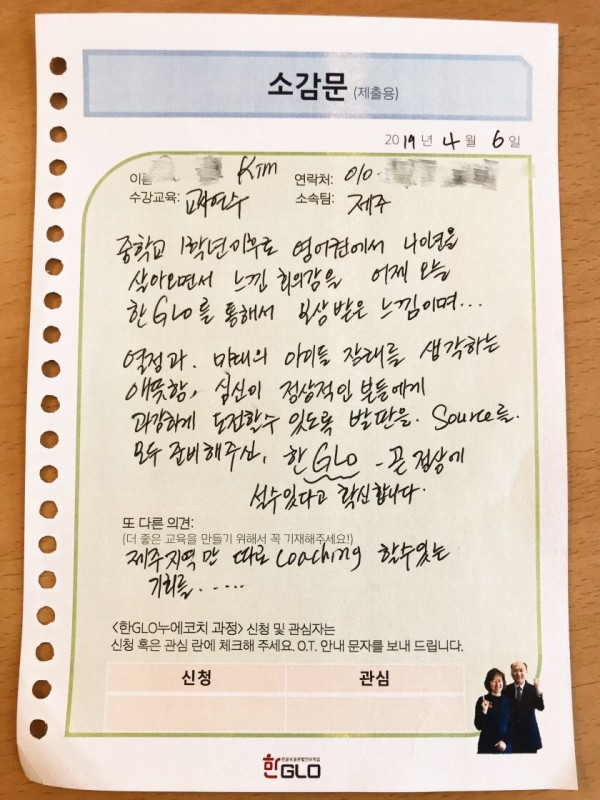 소감문 (제출용)
2019년 4월 6일
이름 KIM 연락처: 010-
수강교육: 교사연수 소속팀: 제주
중학교 1학년 이후로 영어권에서 나이먹을
살아오면서 느낀 회의감을 어제 오늘
한Glo를 통해서 보상받은 느낌이며...
열정과. 미래의 아이들 장래를 생각하는
애뜻함, 심신이 정상적인 분들에게
과감하게 도전할수 있도록 발판을. Source를.
모두 준비해주신, 한Glo - 곧 정상에
설수있다고 확신합니다.
또 다른 의견:
(더 좋은 교육을 만들기 위해서 꼭 기재해주세요!)
제주지역만 따로 coaching 할수있는
기회를......
<한GLO누에코치 과정> 신청 및 관심자는
신청 혹은 관심 란에 체크해 주세요. O.T. 안내 문자를 보내 드립니다.
신청 관심
한GLO